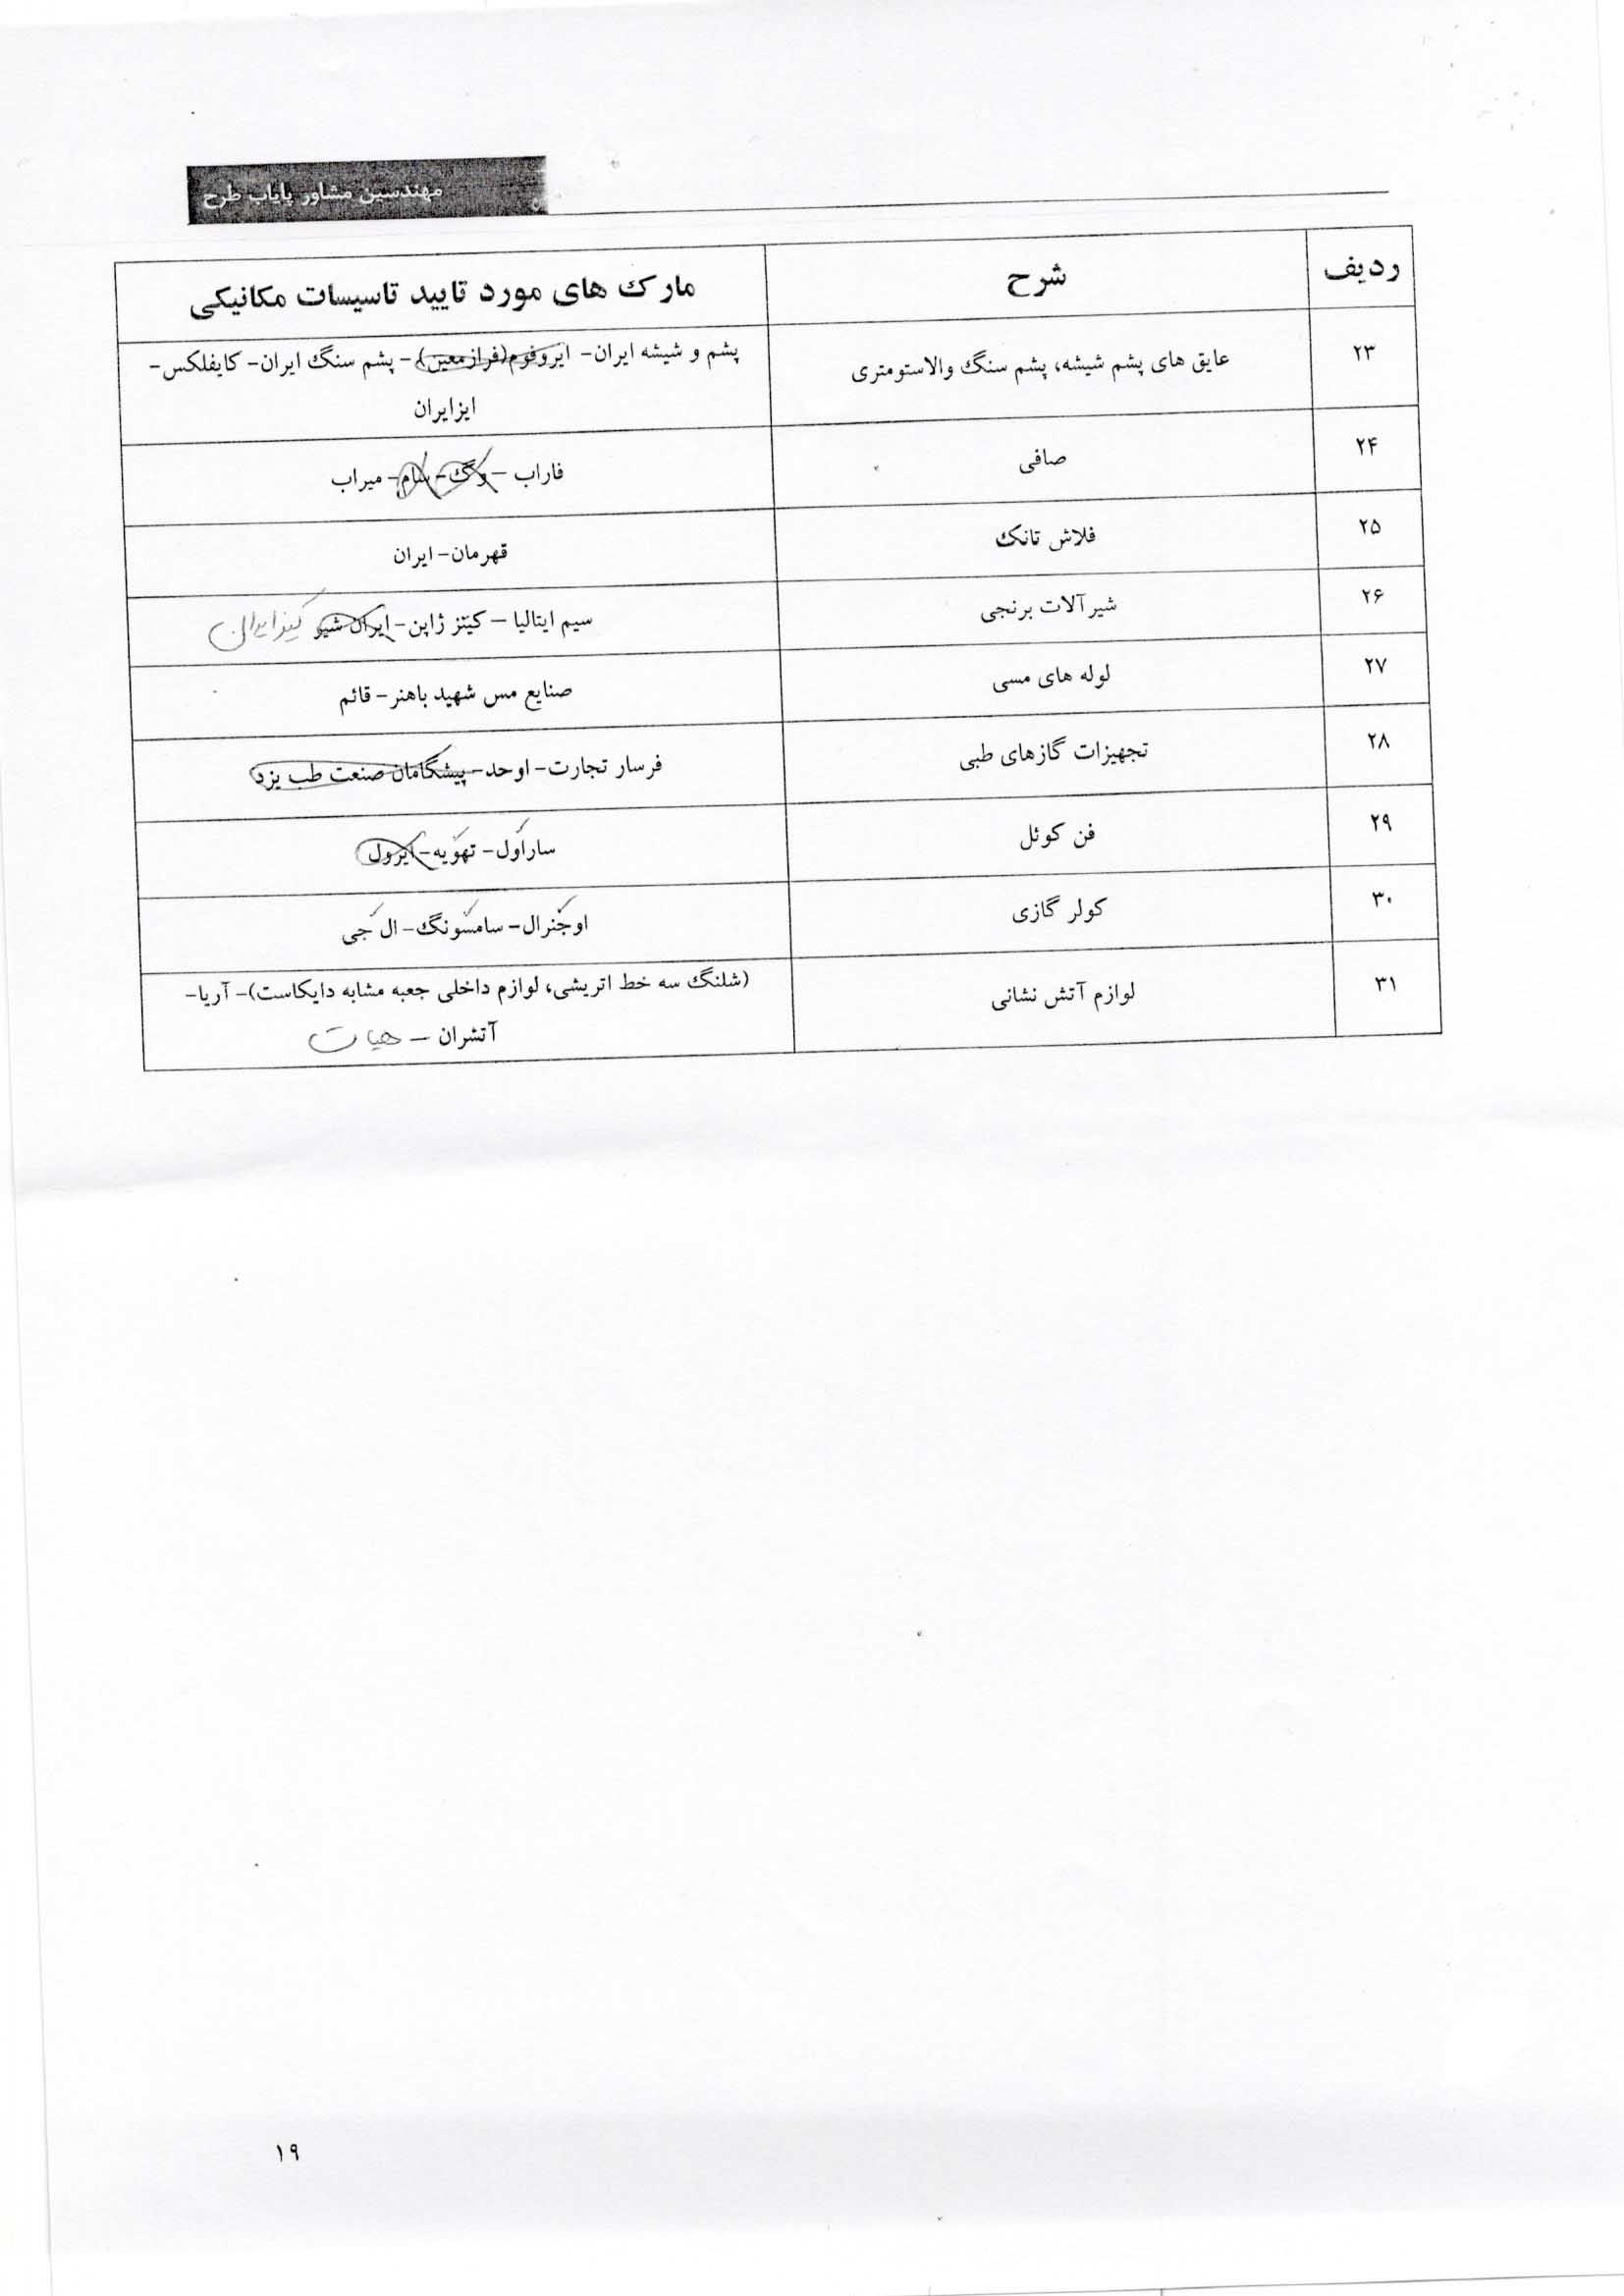 مهندسین مشاور پایاب طرح
ردیف شرح مارک های مورد تایید تاسیسات مکانیکی
۲۳ عایق های پشم شیشه، پشم سنگ والاستومتری پشم و شیشه ایران- ایروفوم(فرازمعین)- پشم سنگ ایران- کایفلکس-
ایزایران
۲۴ صافی فاراب – وگ- سام- میراب
۲۵ فلاش تانک قهرمان- ایران
۲۶ شیرآلات برنجی سیم ایتالیا – کیتز ژاپن- ایران شیر کیز ایران
۲۷ لوله های مسی صنایع مس شهید باهنر- قائم
۲۸ تجهیزات گازهای طبی فرسار تجارت- اوحد- پیشگامان صنعت طب یزد
۲۹ فن کوئل ساراول- تهویه- ایرول
۳۰ کولر گازی اوجنرال- سامسونگ- ال جی
۳۱ لوازم آتش نشانی (شلنگ سه خط اتریشی، لوازم داخلی جعبه مشابه دایکاست)- آریا-
آتشران – هیات
۱۹